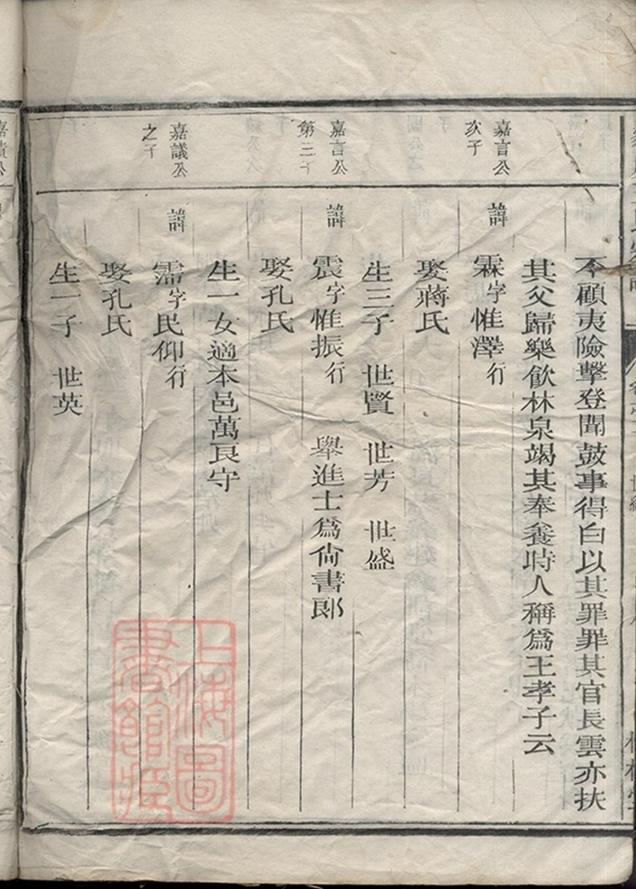 不顧夷險擊登聞鼓事得白以其罪罪其官長雲亦扶
其父歸樂飲林泉竭其奉養時人稱為王孝子云
嘉言公
次子
諱霖字惟澤行
娶蔣氏
生三子 世賢 世芳 世盛
嘉言公
第三子
諱震字惟振行 舉進士為尚書郎
娶孔氏
生一女適本邑萬良守
嘉議公
之子
諱濡字民仰行
娶孔氏
生一子 世英
上海圖
書館藏